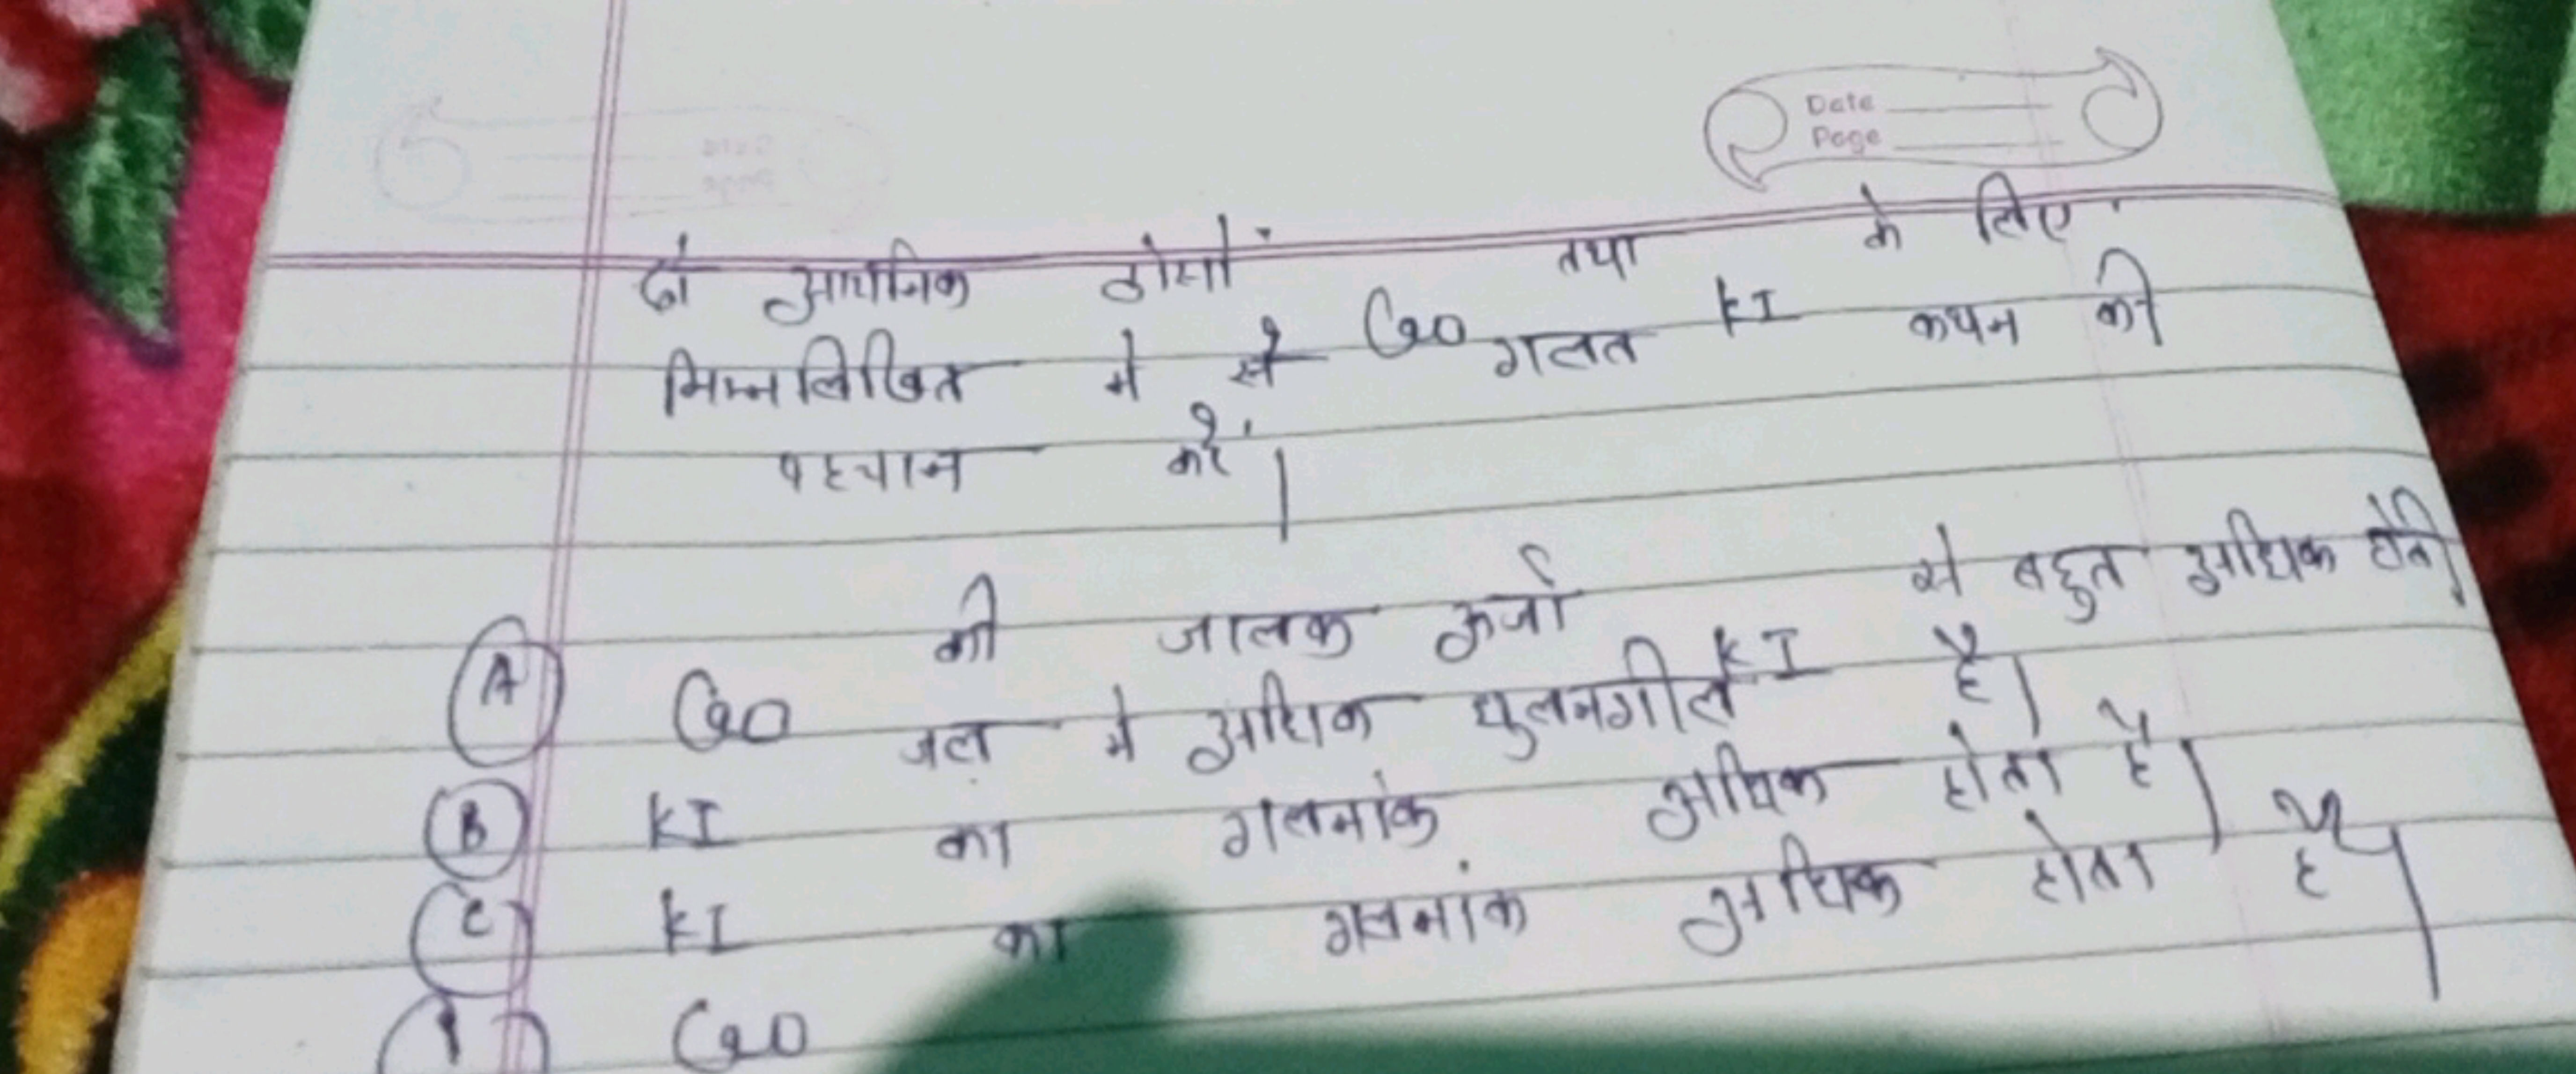 Date
Page
दो आयनिक ठोसों CaO तथा KI के लिए
निम्नलिखित में से गलत कथन की
पहचान करें।
(A) CaO की जालक ऊर्जा KI से बहुत अधिक होती है।
(B) KI जल में अधिक घुलनशील है।
(C) KI का गलनांक अधिक होता है।
CaO का गलनांक अधिक होता है।